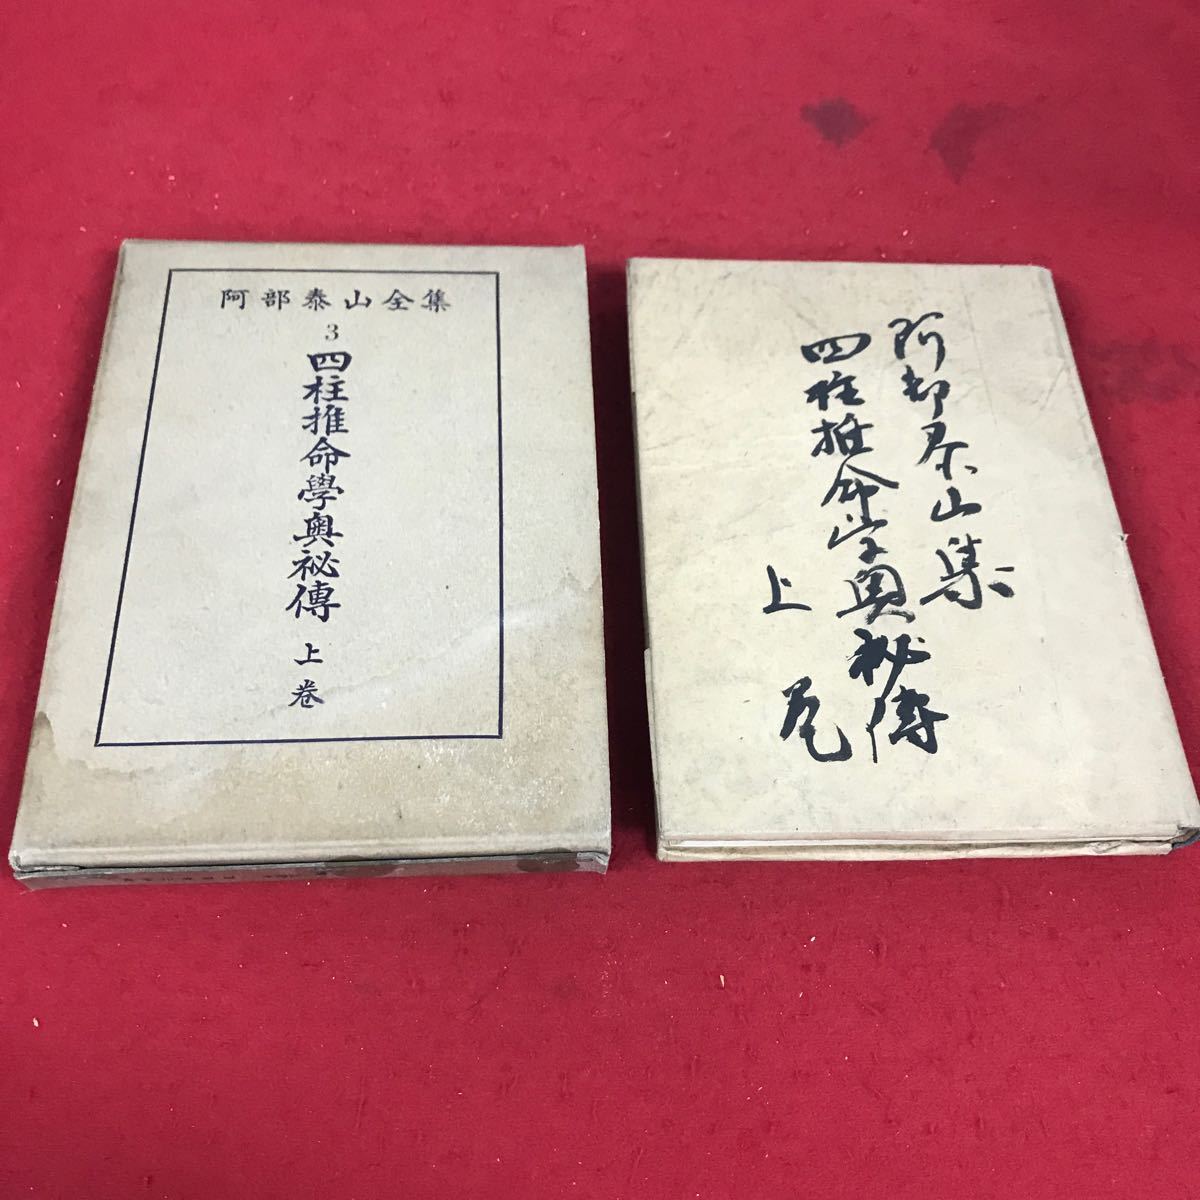 阿部泰山全集
3
四柱推命學奥祕傳
上巻
阿部泰山集
四柱推命学奥秘傳
上